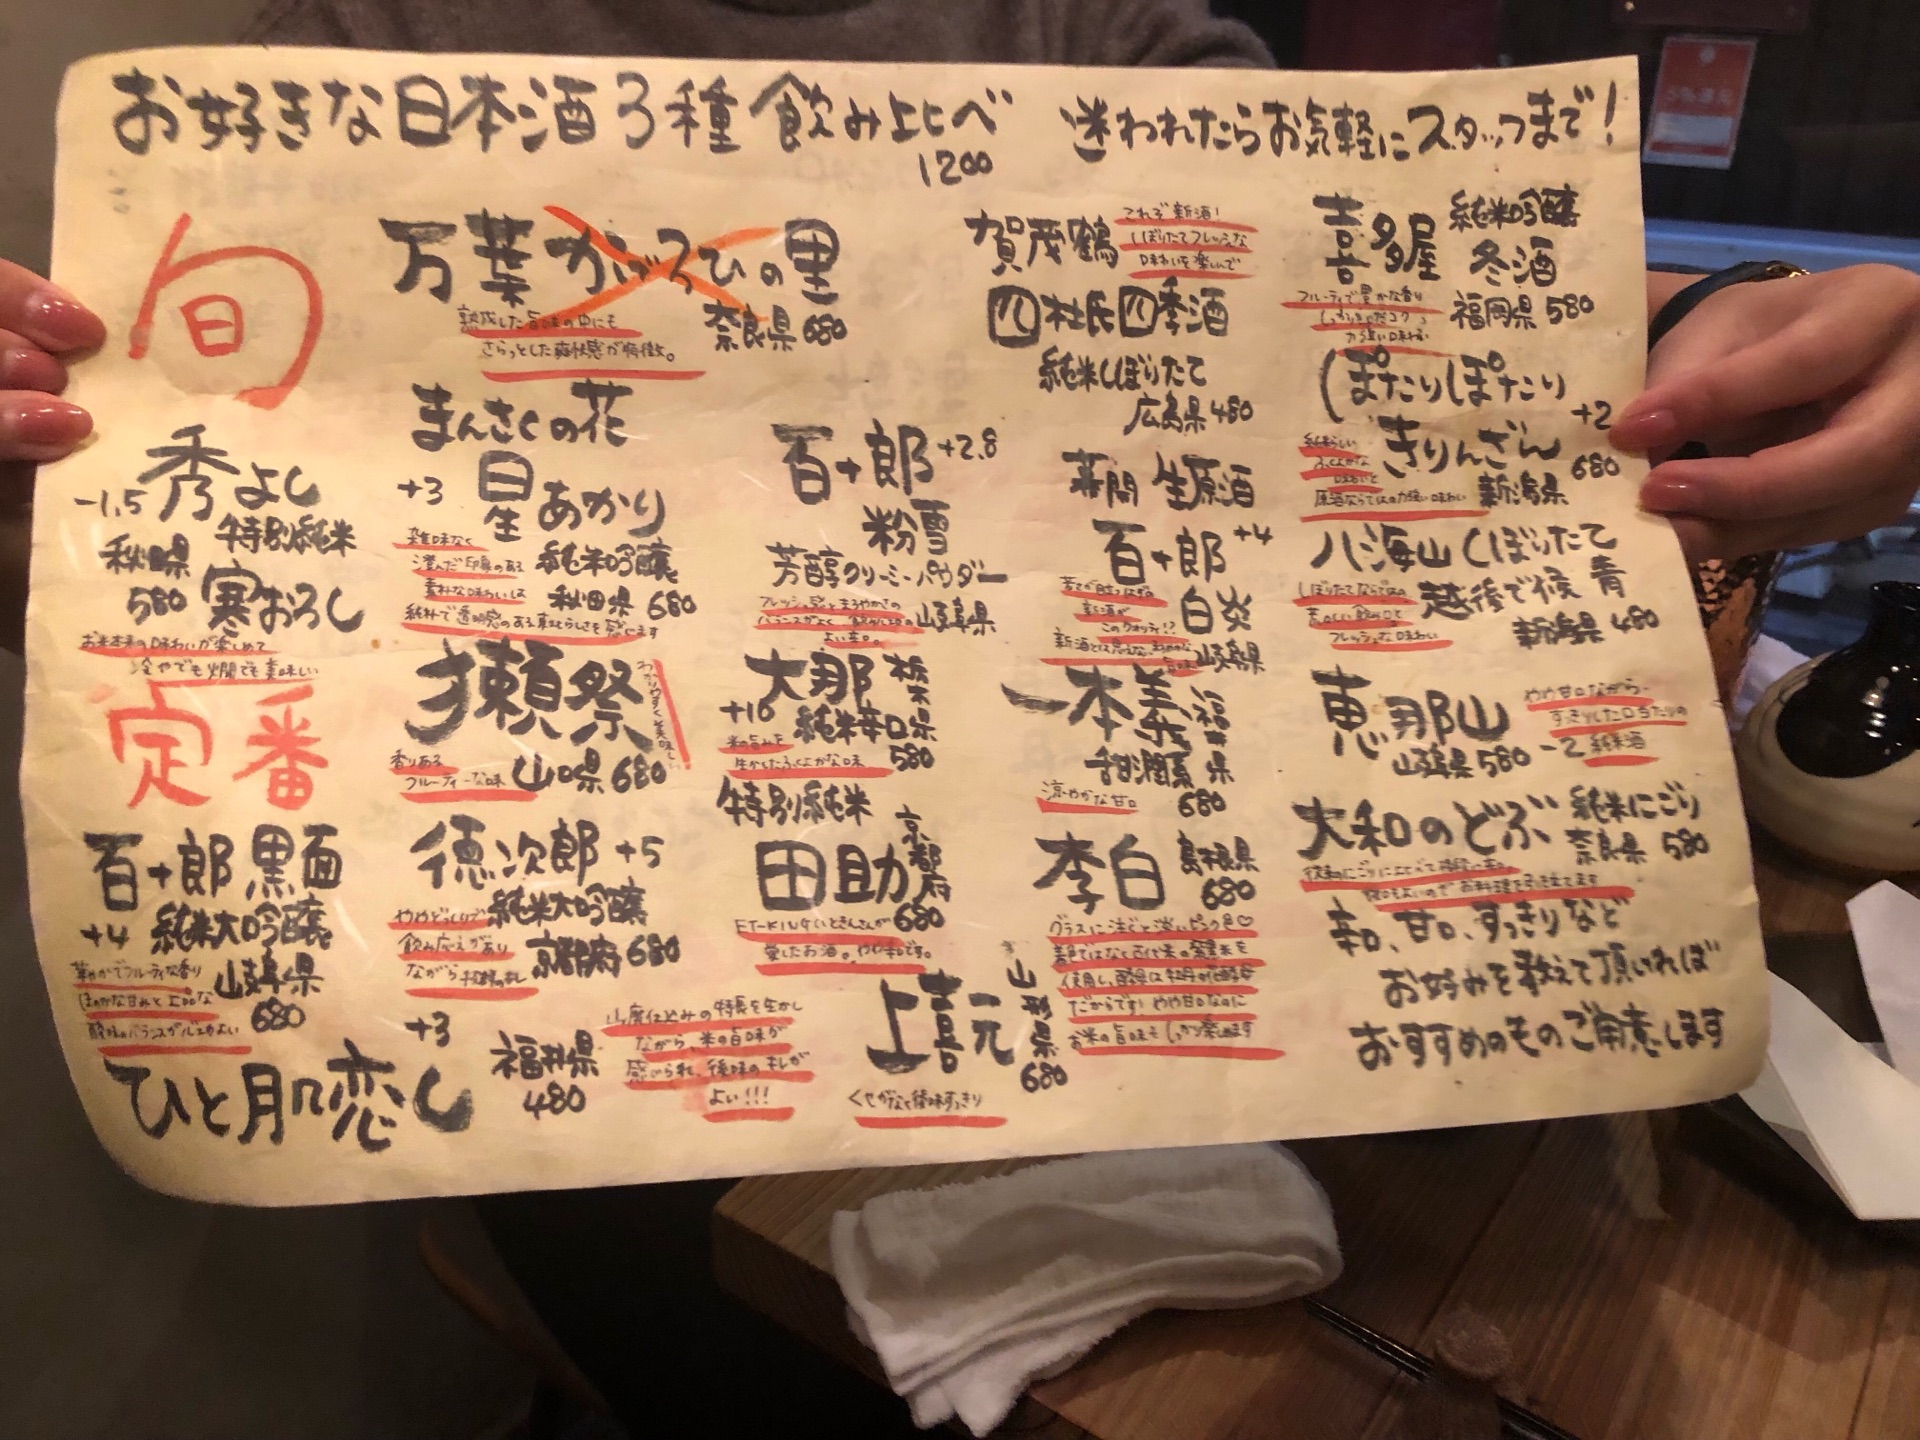 お好きな日本酒3種飲み比べ
1200
迷われたらお気軽にスタッフまで!
旬
万葉かげろひの里
奈良県 680
熟成した旨味の中にも
さらっとした爽快感が特徴。
賀茂鶴
これぞ新酒!
しぼりたてフレッシュな
味わいを楽しんで
四杜氏四季酒
純米しぼりたて
広島県 480
喜多屋
純米吟醸
冬酒
福岡県 580
フルーティで豊かな香り
力強い味わい
ぽたりぽたり
きりんざん
+2
680
新潟県
味わいと
原酒ならではの力強い味わい
秀よし
-1.5
特別純米
秋田県
580
寒おろし
お米本来の味わいが楽しめて
冷やでも燗でも美味しい
まんさくの花
+3
星あかり
純米吟醸
秋田県 680
雑味なく
澄んだ印象のある
素朴な味わいは
純朴で透明感のある東北らしさを感じます
百十郎 +2.8
粉雪
芳醇クリーミーパウダー
岐阜県
フレッシュ感とまろやかさの
よい辛口。
生原酒
百十郎 +4
白炎
岐阜県
新酒が
このクオリティ!?
八海山 しぼりたて
越後で候 青
新潟県 480
しぼりたてならではの
荒々しい飲み口と
フレッシュな味わい
定番
獺祭
わかりやすく美味しい
香りある
フルーティーな味
山口県 680
大那
栃木県
+10
純米辛口
580
米の旨みを
生かしたふくよかな味
一本義
福井県
甜潤
680
涼やかな甘口
恵那山
岐阜県 580 -2 純米酒
やや甘口ながら、
すっきりした口当たりの
百十郎 黒面
+4
純米大吟醸
岐阜県
680
華やかでフルーティな香り
ほのかな甘みと上品な
酸味のバランスがルスがよい
徳次郎 +5
純米大吟醸
京都府 680
飲み応えがあり
ながら
特別純米
田助
京都府
680
ET-KINGいときんさんが
愛したお酒。やや辛です。
李白
島根県
680
グラスに注ぐと淡いピンク色♡
着色ではなく古代米の紫黒米を
使用し、酵母は牡丹の花酵母
だからです! やや甘口なのに
お米の旨味もしっかり楽しめます
大和のどぶ
純米にごり
奈良県 580
従来のにごりに比べて
ひと肌恋し
+3
福井県
480
山廃仕込みの特長を生かし
ながら、米の旨味が
感じられ、後味のキレが
よい!!!
上喜元
山形県
680
くせがなく後味すっきり
辛口、甘口、すっきりなど
お好みを教えて頂ければ
おすすめのものご用意します